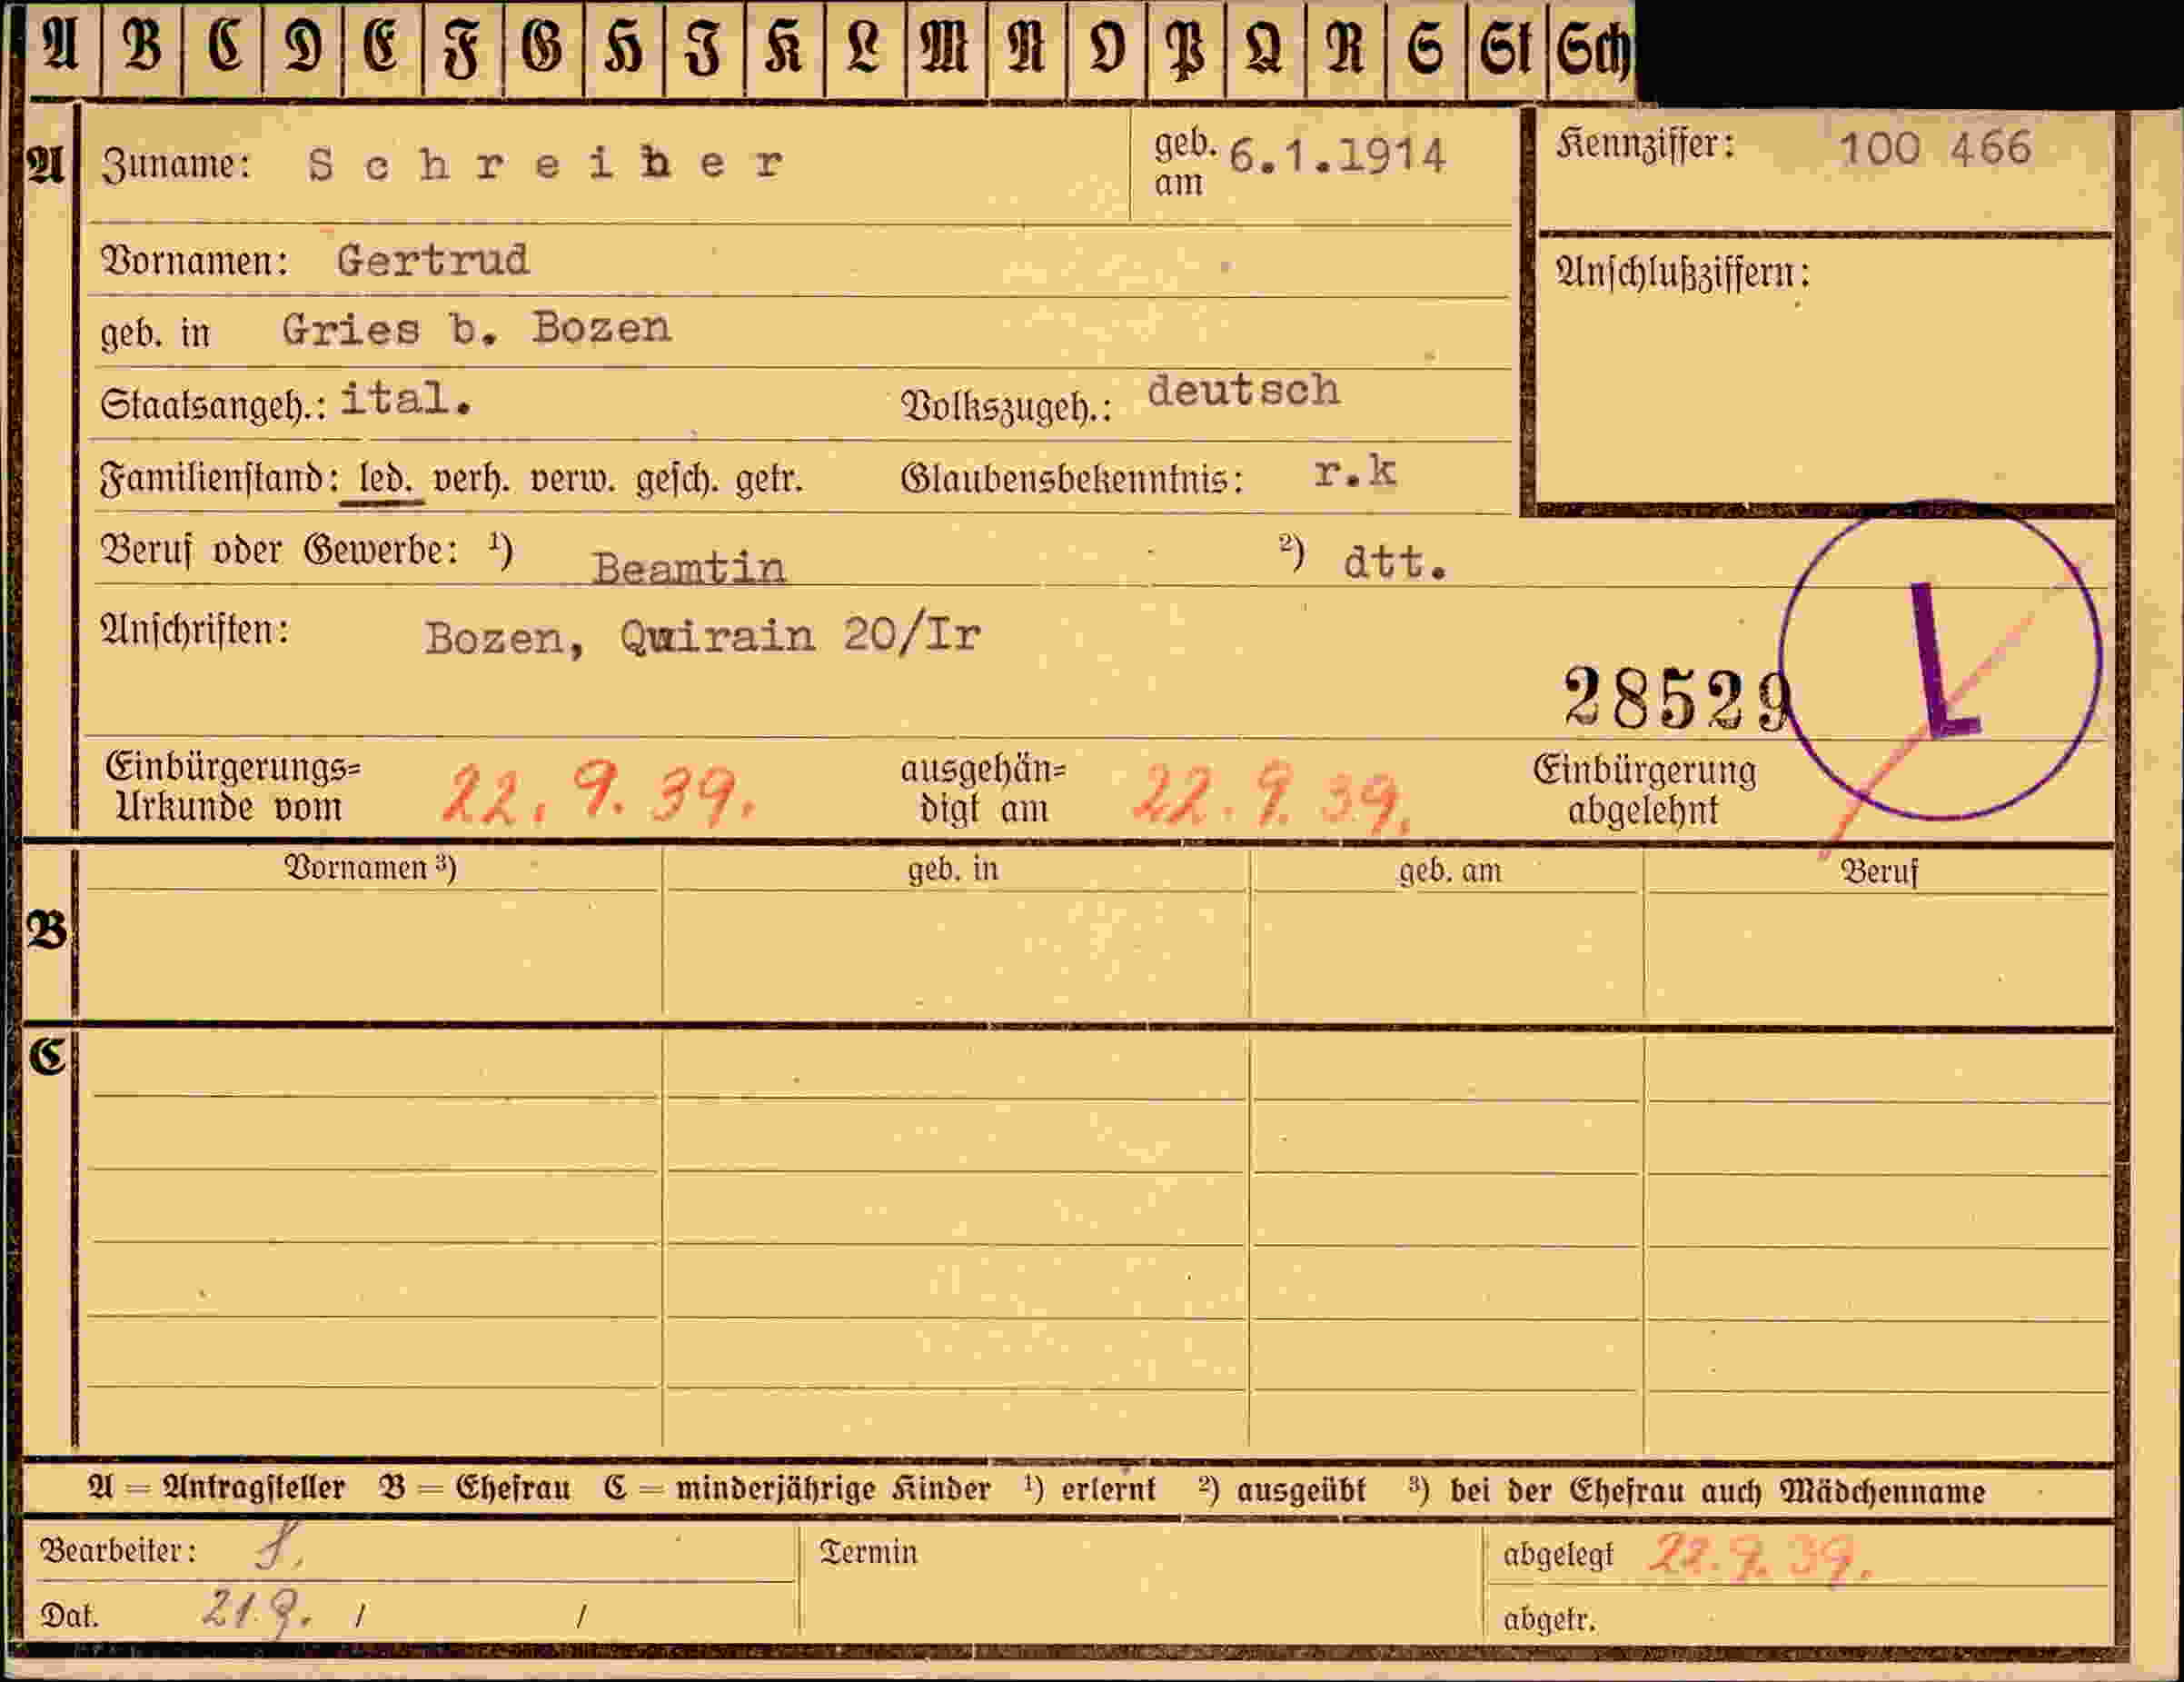 A B C D E F G H I K L M N O P Q R S St Sch
A Zuname: Schreiber geb. am 6.1.1914 Kennziffer: 100 466
Vornamen: Gertrud Anschlußziffern:
geb. in Gries b. Bozen
Staatsangeh.: ital. Volkszugeh.: deutsch
Familienstand: led. verh. verw. gesch. getr. Glaubensbekenntnis: r.k
Beruf oder Gewerbe: ¹) Beamtin ²) dtt.
Anschriften: Bozen, Quirain 20/Ir
28529 L
Einbürgerungs=
Urkunde vom 22. 9. 39. ausgehän=
digt am 22. 9. 39. Einbürgerung
abgelehnt
Vornamen ³) geb. in geb. am Beruf
B
C
A = Antragsteller B = Ehefrau C = minderjährige Kinder ¹) erlernt ²) ausgeübt ³) bei der Ehefrau auch Mädchenname
Bearbeiter: Termin abgelegt 22. 9. 39.
Dat. 21.9. / / abgetr.